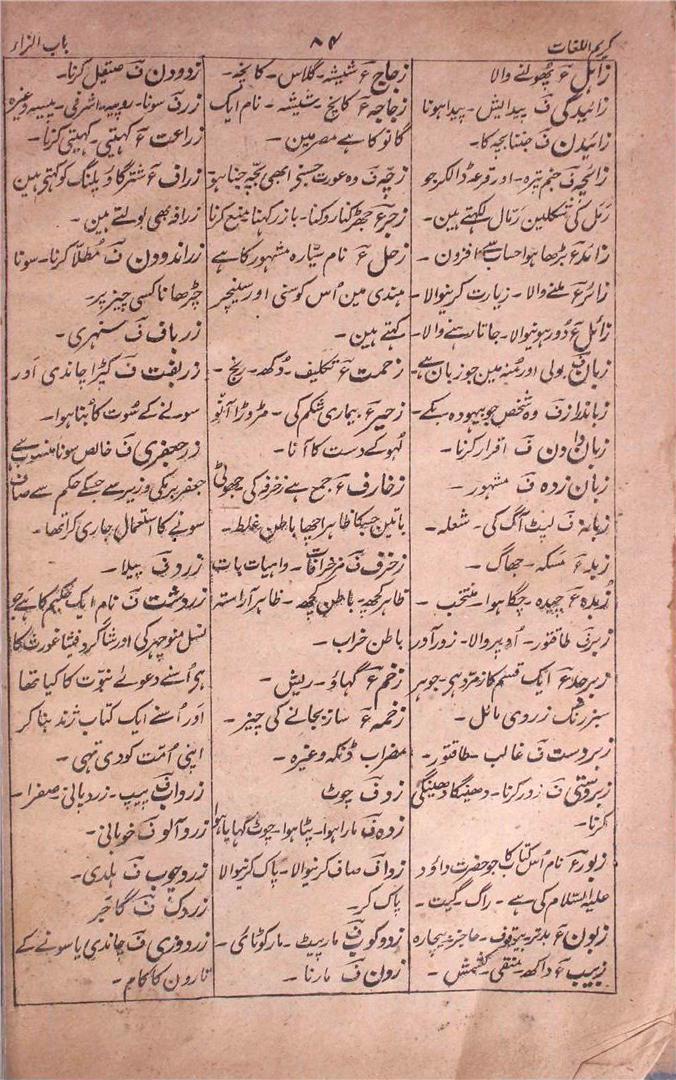 کریم اللغات
۸۴
باب الزار
زاہل ع پھولنے والا
زائیدگی ف پیدایش۔ پیدا ہونا
زائیدن ف جننا بچہ کا۔
زائچہ ف جنم پترہ۔ اور قرعہ ڈالکر جو
رمل کی شکلین رمال لکہتے ہین۔
زائد ع بڑھا ہوا حساب سے۔ افزون۔
زائر ع ملنے والا۔ زیارت کرنیوالا۔
زائل ع دور ہونیوالا۔ جاتا رہنے والا۔
زبان ف بولی اور مُنہ مین جو زبان ہے۔
زباندراز ف وہ شخص جو بیہودہ بکے۔
زبان دادن ف اقرار کرنا۔
زبان زدہ ف مشہور۔
زبانہ ف لپٹ آگ کی۔ شعلہ۔
زبد ع مسکہ۔ جھاگ۔
زُبدہ ع چیدہ۔ چُگا ہوا۔ منتخب۔
زبر ف طاقتور۔ اوپر والا۔ زورآور
زبرجد ع ایک قسم کا زمرد ہی۔ جوہر
سبز رنگ زردی مائل۔
زبردست ف غالب۔ طاقتور۔
زبردستی ف زور کرنا۔ دھینگا دھینگی
کرنا۔
زبور ع نام اُس کتاب کا جو حضرت داؤد
علیہ السلام کی ہے۔ راگ۔ گیت۔
زبون ع بدتر۔ بیوقوف۔ عاجز۔ بیچارہ
زبیب ع داکھ۔ منقی۔ کشمش۔
زجاج ع شیشہ۔ گلاس۔ کانچ۔
زجاجہ ع کانچ۔ شیشہ۔ نام ایک
گانو کا ہے مصر مین۔
زچہ ف وہ عورت جسنی ابھی بچہ جنا ہو
زجر ع جھڑکنا۔ روکنا۔ باز رکہنا۔ منع کرنا
زحل ع نام سیّارہ مشہور کا ہے
ہندی مین اُس کو سنی اور سنیچر
کہتے ہین۔
زحمت ع تکلیف۔ دُکھ۔ رنج۔
زحیر ع بیماری شکم کی۔ مڑوڑا آنو
لہو کے دست کا آنا۔
زخارف ع جمع ہے زخرف کی۔ جھوٹی
باتین جسکا ظاہر اچھا باطن غلط۔
زخرف ف مزخرفات۔ واہیات بات
ظاہر کچھ۔ باطن کچھ۔ ظاہر آراستہ
باطن خراب۔
زخم ع گہاؤ۔ ریش۔
زخمہ ع ساز بجانے کی چیز۔
مضراب ڈنکہ وغیرہ۔
زد ف چوٹ
زدہ ف مارا ہوا۔ پٹا ہوا۔ چوٹ کہایا ہوا
زدا ف صاف کرنیوالا۔ پاک کرنیوالا
پاک کر۔
زدوکوب ف مارپیٹ۔ مارکوٹائی۔
زدن ف مارنا۔
زدودن ف صیقل کرنا۔
زر ف سونا۔ روپیہ۔ اشرفی۔ پیسہ وغیرہ
زراعت ع کہیتی۔ کہیتی کرنا۔
زراف ع شتر گاؤ پلنگ کو کہتی ہین
زرافہ بھی بولتے ہین۔
زراندودن ف مُطلّا کرنا۔ سونا
چڑھانا کسی چیز پر۔
زرباف ف سنہری۔
زربفت ف کپڑا چاندی اور
سونے کے سُوت کا بُنا ہوا۔
زر جعفری ف خالص سونا منسوب ہے
جعفر برمکی وزیر سے جسکے حکم سے صاف
سونے کا استعمال جاری کرا تھا۔
زرد ف پیلا۔
زردشت ف نام ایک حکیم کا ہے جو
نسل منوچہر کی اور شاگرد فیثاغورث کا
ہی اُسنے دعوائے نبوّت کا کیا تھا
اور اُسنے ایک کتاب ژند بنا کر
اپنی اُمّت کو دی تہی۔
زرداب ف پیپ۔ زرد پانی۔ صفرا۔
زردآلو ف خوبانی۔
زردچوب ف ہلدی۔
زردک ف گاجر
زردوزی ف چاندی یا سونے کے
تارون کا کام۔